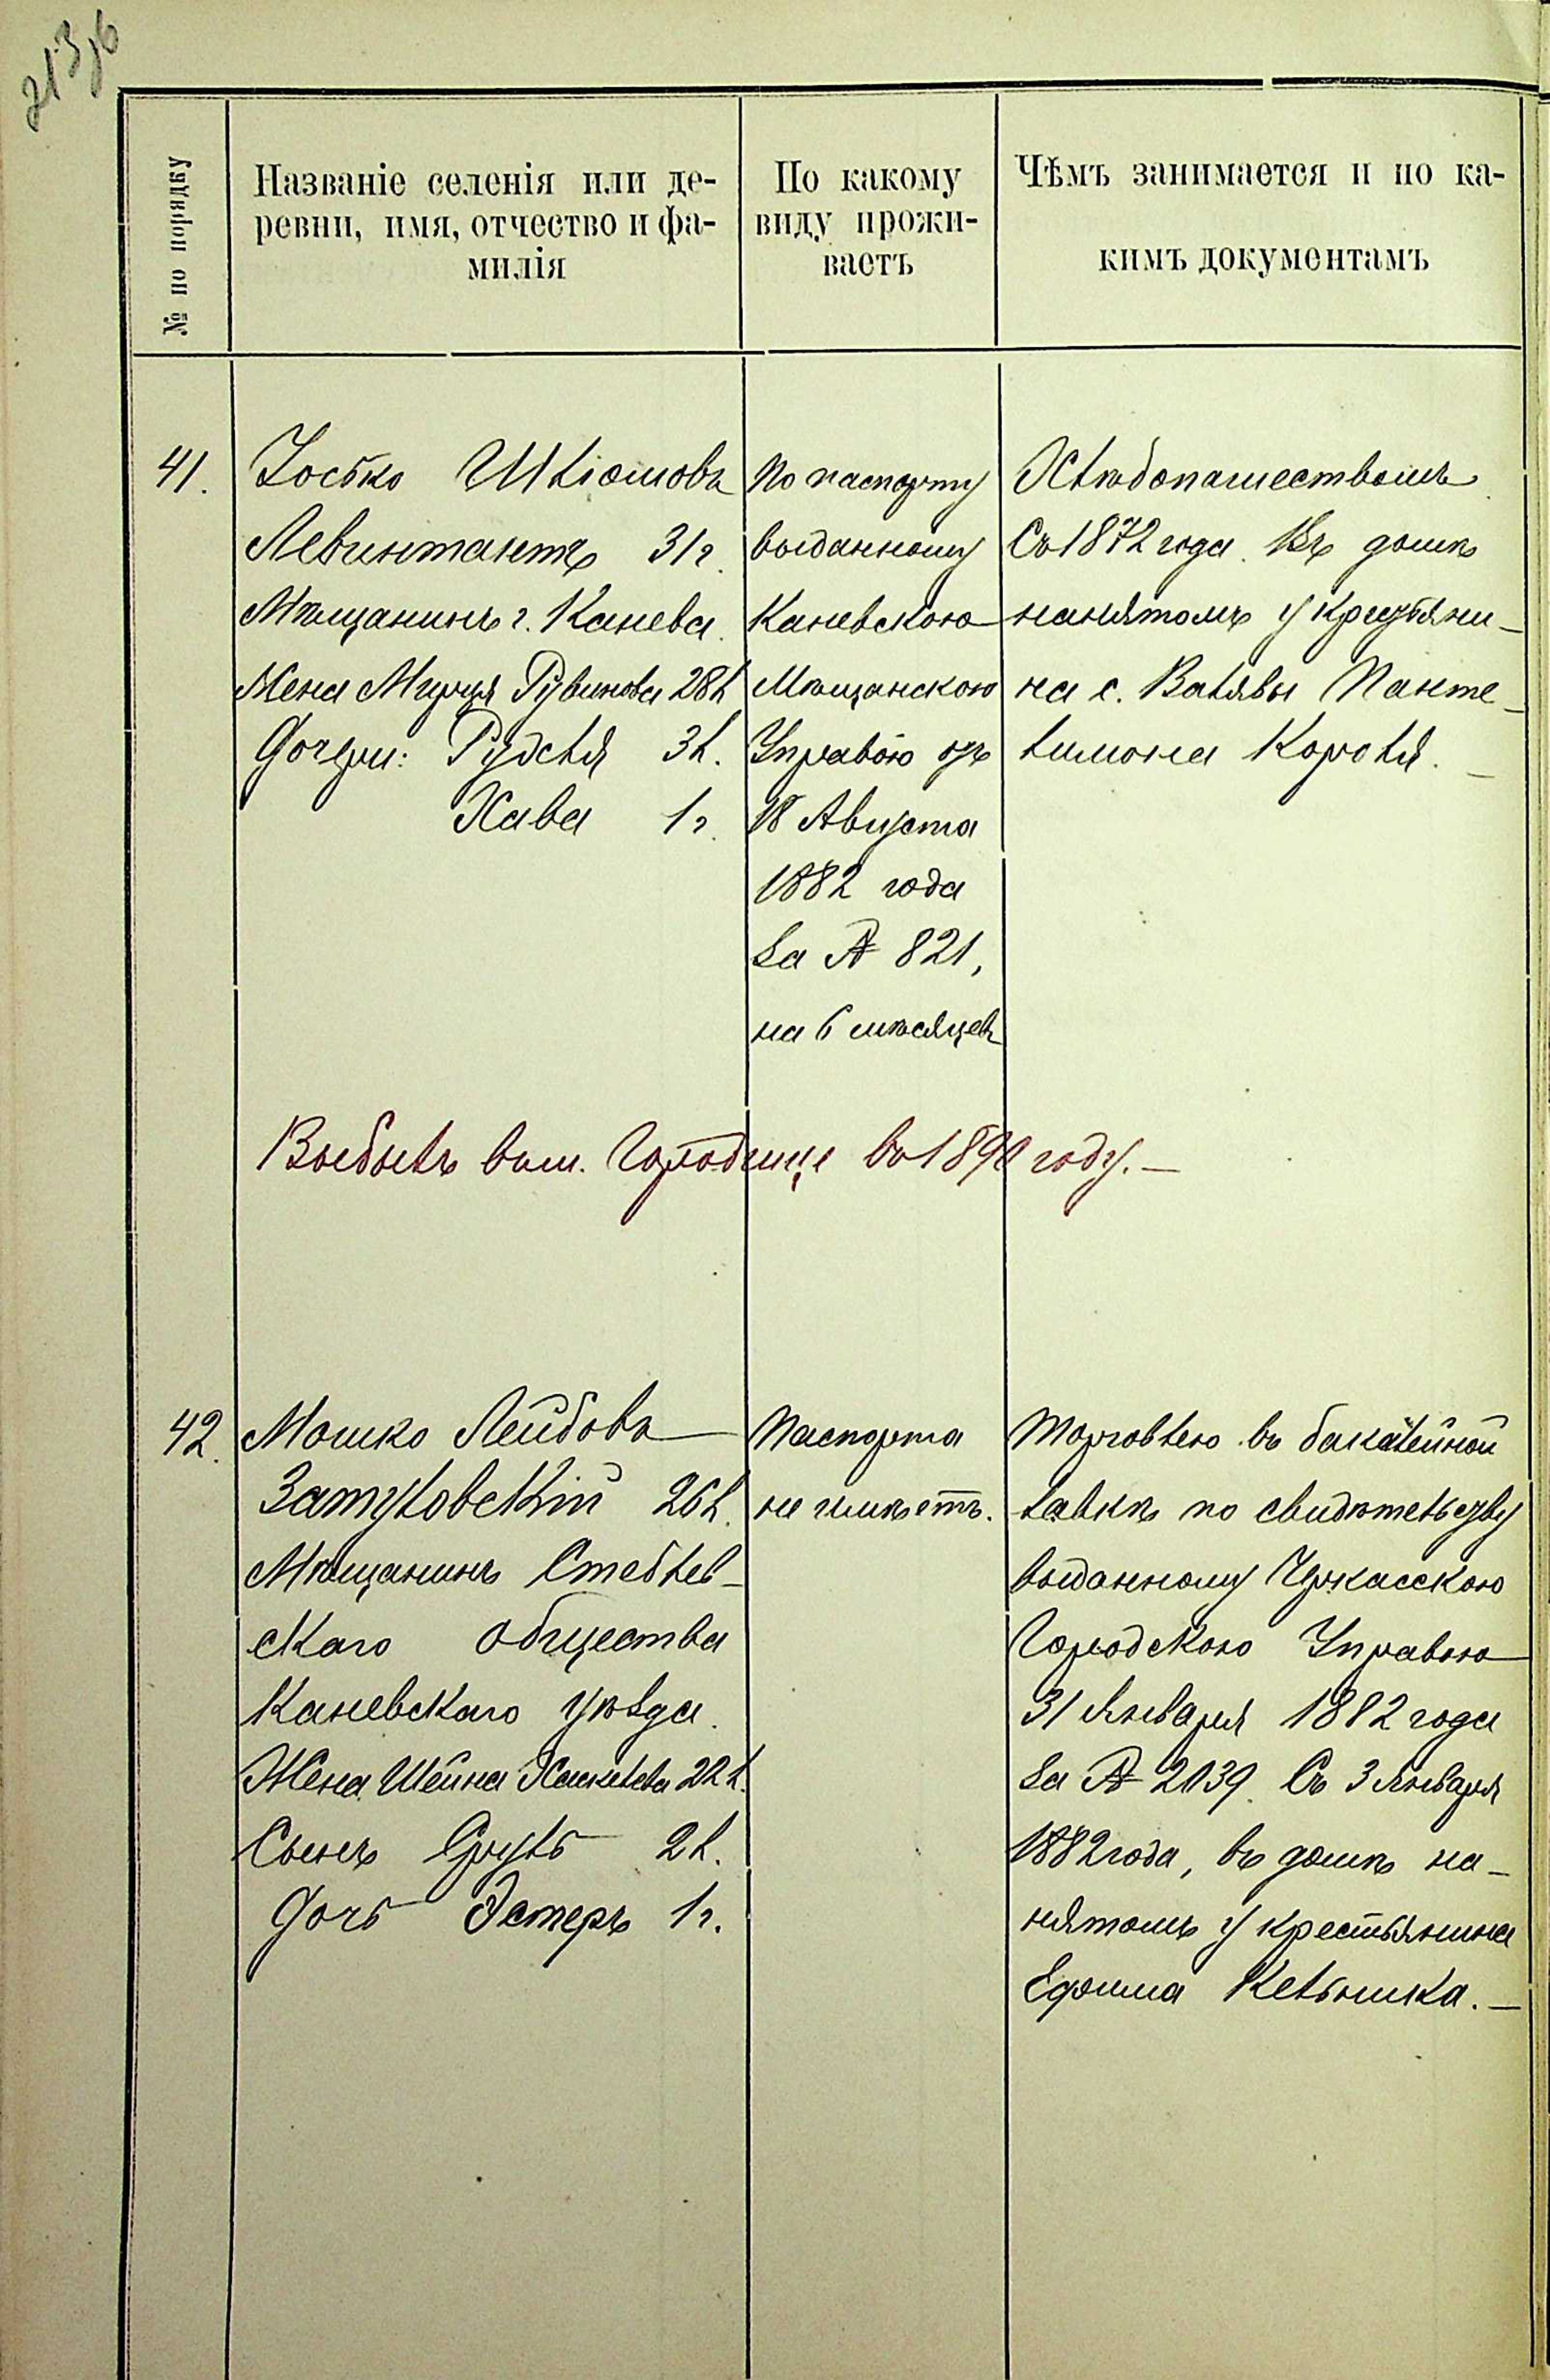 213 об
№ по порядку
Названіе селенія или де-
ревни, имя, отчество и фа-
милія
По какому
виду прожи-
ваетъ
Чѣмъ занимается и по ка-
кимъ документамъ
41.
Іосько Шліомовъ
Левинтантъ 31 г.
Мѣщанинъ г. Канева.
Жена Мирля Рувинова 28 л.
Дочери: Рудля 3 л.
Хава 1 г.
По паспорту
выданному
Каневскою
Мѣщанскою
Управою отъ
18 Августа
1882 года
за № 821,
на 6 мѣсяцевъ
Хлѣбопашествомъ
Съ 1872 года. Въ домѣ
нанятомъ у крестьяни-
на с. Валявы Панте-
лимона Короля. –
Выбылъ въ м. Городище въ 1890 году. –
42.
Мошко Лейбовъ
Затуловскій 26 л.
Мѣщанинъ Стеблев-
скаго общества
Каневскаго уѣзда.
Жена Шейна Хаскелева 22 л.
Сынъ Сруль 2 л.
Дочь Эстеръ 1 г.
Паспорта
не имѣетъ.
Торговлею въ бакалейной
лавкѣ по свидѣтельству
выданному Черкасскою
Городскою Управою
31 Января 1882 года
за № 2039. Съ 3 Января
1882 года, въ домѣ на-
нятомъ у крестьянина
Ефима Кельника. –